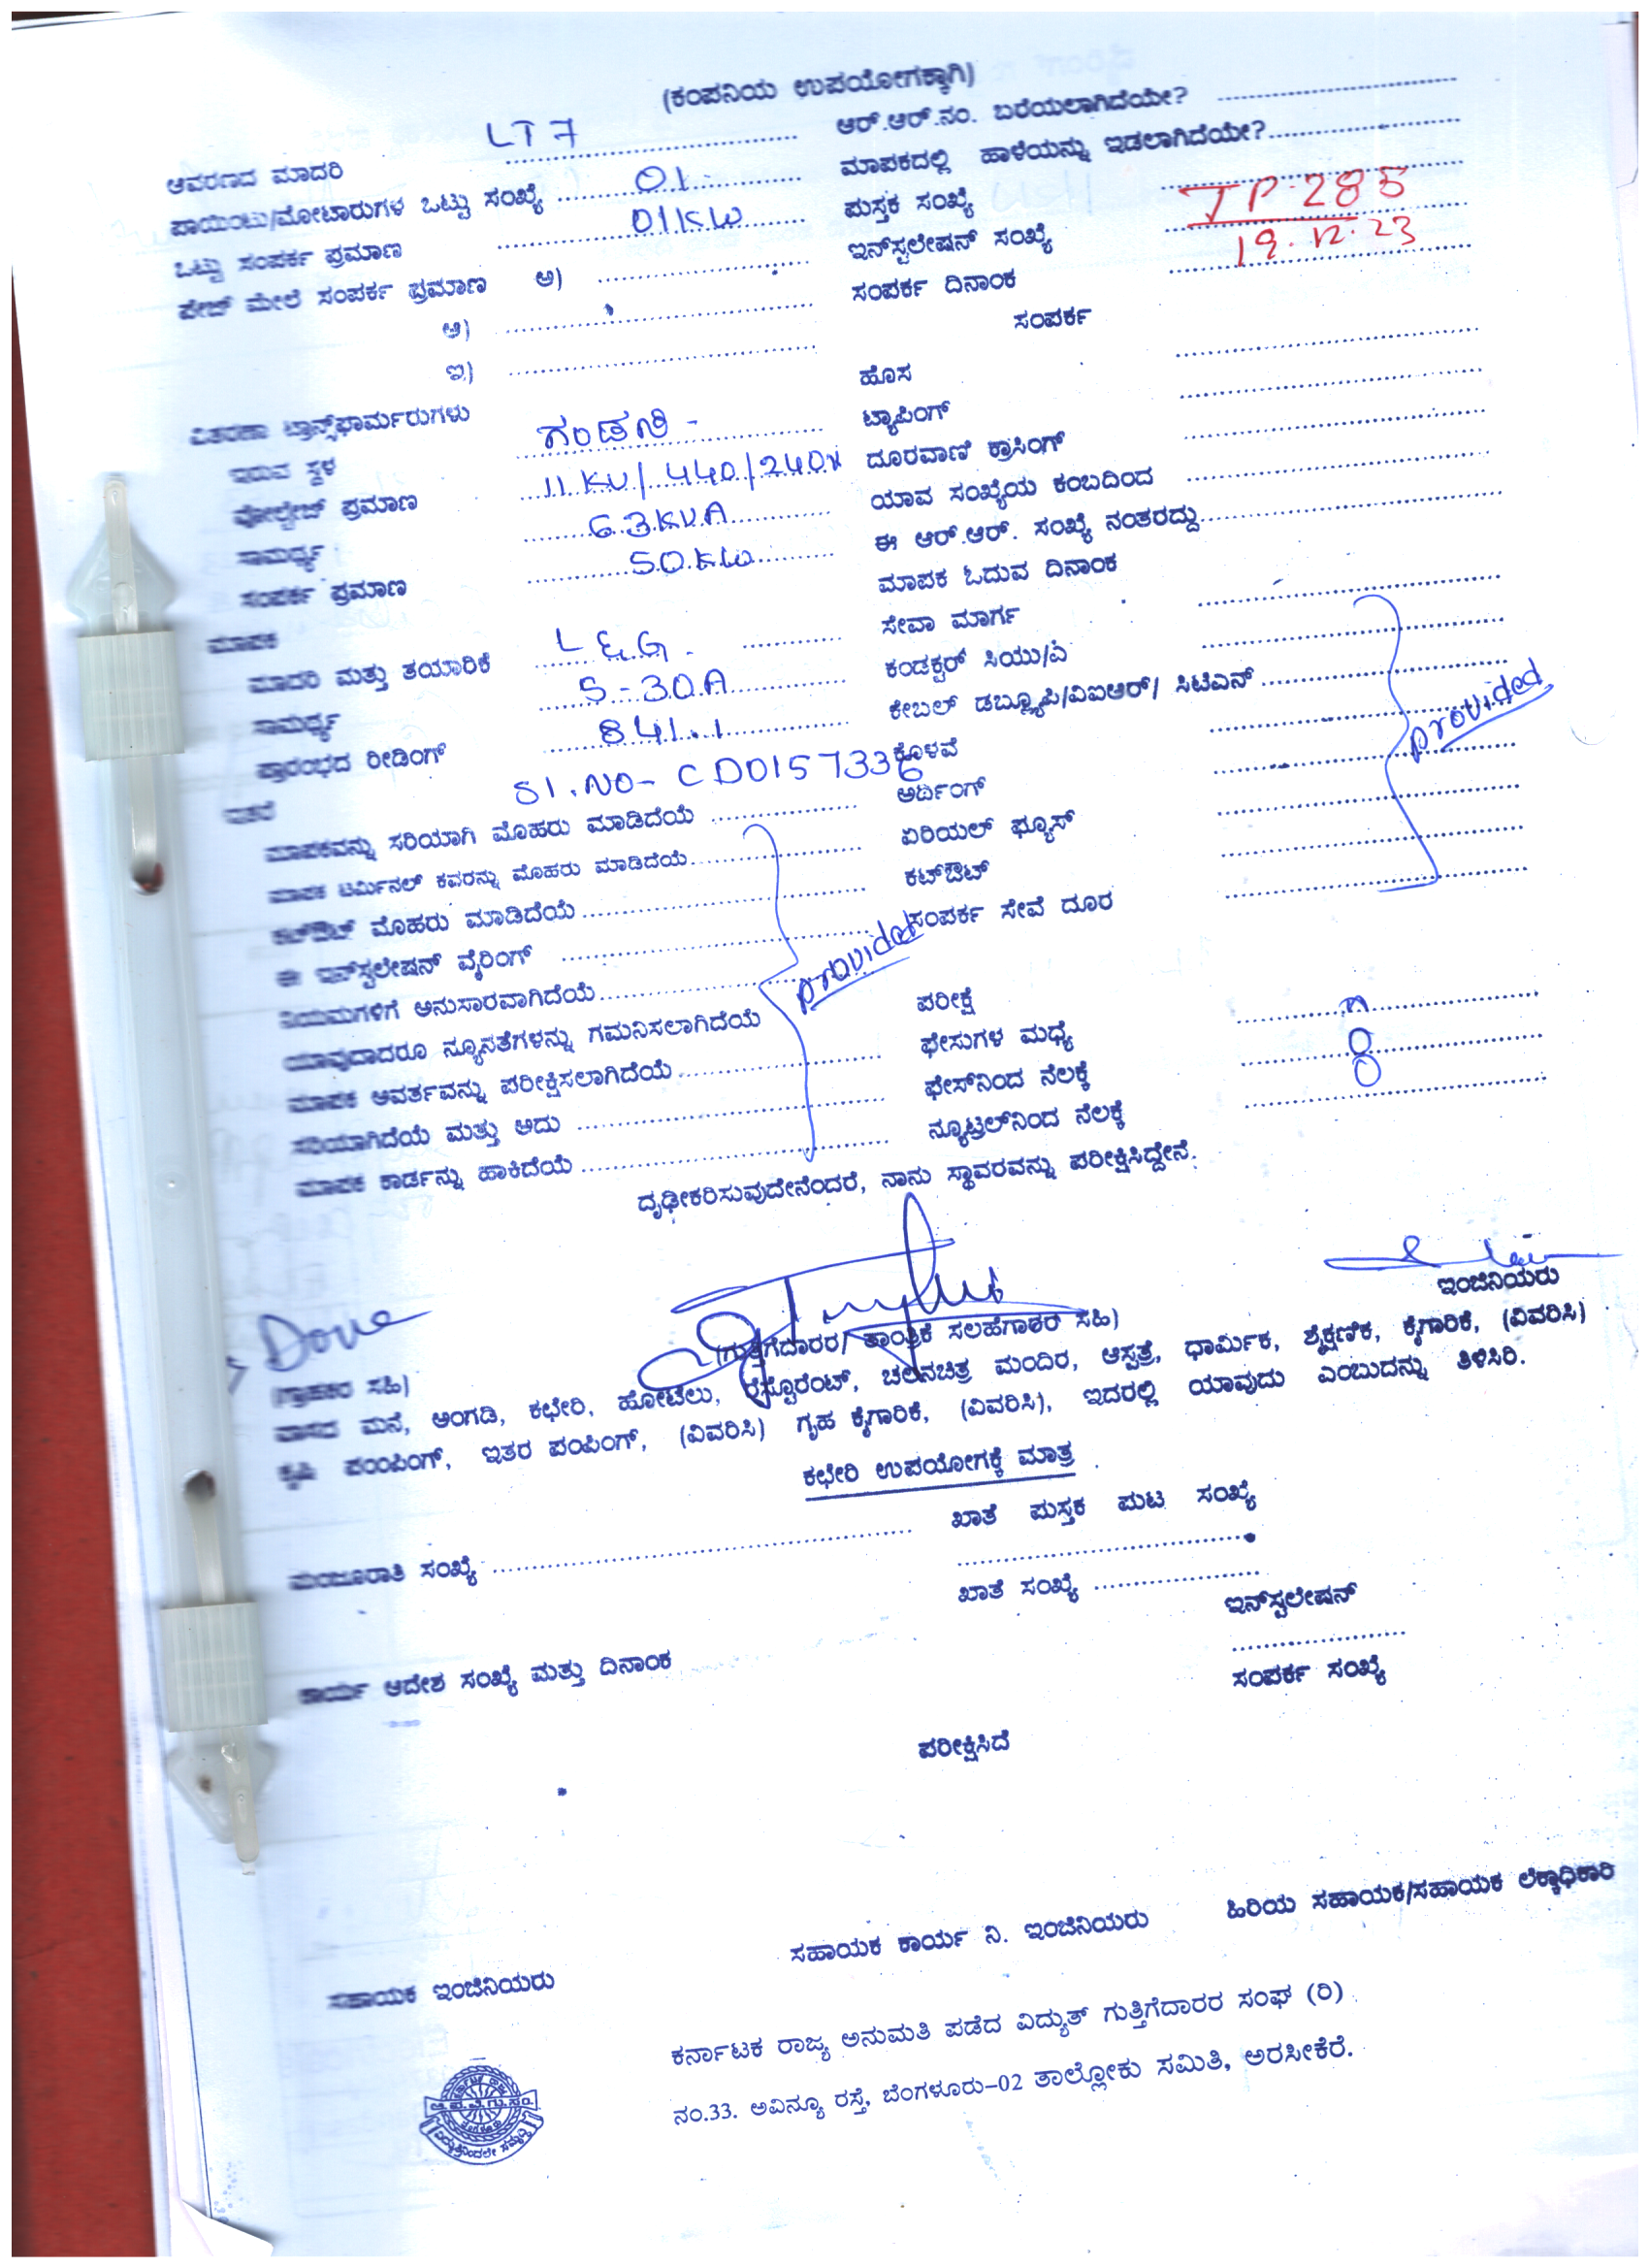 (ಕಂಪನಿಯ ಉಪಯೋಗಕ್ಕಾಗಿ)
ಆವರಣದ ಮಾದರಿ LT 7
ಪಾಯಿಂಟು/ಮೋಟಾರುಗಳ ಒಟ್ಟು ಸಂಖ್ಯೆ 01
ಒಟ್ಟು ಸಂಪರ್ಕ ಪ್ರಮಾಣ 01 KW
ಪೇಜ್ ಮೇಲೆ ಸಂಪರ್ಕ ಪ್ರಮಾಣ ಅ)
ಆ)
ಇ)
ವಿತರಣಾ ಟ್ರಾನ್ಸ್‌ಫಾರ್ಮರುಗಳು
ಇರುವ ಸ್ಥಳ ಗಂಡಸಿ -
ವೋಲ್ಟೇಜ್ ಪ್ರಮಾಣ 11 KV / 440 / 240V
ಸಾಮರ್ಥ್ಯ 63 KVA
ಸಂಪರ್ಕ ಪ್ರಮಾಣ 50 KW
ಮಾಪಕ
ಮಾದರಿ ಮತ್ತು ತಯಾರಿಕೆ L & G.
ಸಾಮರ್ಥ್ಯ 5-30A
ಪ್ರಾರಂಭದ ರೀಡಿಂಗ್ 841.1
ಇತರೆ Sl. NO- CD0157336
ಮಾಪಕವನ್ನು ಸರಿಯಾಗಿ ಮೊಹರು ಮಾಡಿದೆಯೆ
ಮಾಪಕ ಟರ್ಮಿನಲ್ ಕವರನ್ನು ಮೊಹರು ಮಾಡಿದೆಯೆ
ಕಟ್‌ಔಟ್ ಮೊಹರು ಮಾಡಿದೆಯೆ
ಈ ಇನ್‌ಸ್ಟಲೇಷನ್ ವೈರಿಂಗ್
ನಿಯಮಗಳಿಗೆ ಅನುಸಾರವಾಗಿದೆಯೆ
ಯಾವುದಾದರೂ ನ್ಯೂನತೆಗಳನ್ನು ಗಮನಿಸಲಾಗಿದೆಯೆ
ಮಾಪಕ ಆವರ್ತವನ್ನು ಪರೀಕ್ಷಿಸಲಾಗಿದೆಯೆ
ಸರಿಯಾಗಿದೆಯೆ ಮತ್ತು ಅದು
ಮಾಪಕ ಕಾರ್ಡನ್ನು ಹಾಕಿದೆಯೆ
provided
ಆರ್.ಆರ್.ನಂ. ಬರೆಯಲಾಗಿದೆಯೇ?
ಮಾಪಕದಲ್ಲಿ ಹಾಳೆಯನ್ನು ಇಡಲಾಗಿದೆಯೇ?
ಪುಸ್ತಕ ಸಂಖ್ಯೆ
ಇನ್‌ಸ್ಟಲೇಷನ್ ಸಂಖ್ಯೆ JP-285
ಸಂಪರ್ಕ ದಿನಾಂಕ 19.12.23
ಸಂಪರ್ಕ
ಹೊಸ
ಟ್ಯಾಪಿಂಗ್
ದೂರವಾಣಿ ಕ್ರಾಸಿಂಗ್
ಯಾವ ಸಂಖ್ಯೆಯ ಕಂಬದಿಂದ
ಈ ಆರ್.ಆರ್. ಸಂಖ್ಯೆ ನಂತರದ್ದು
ಮಾಪಕ ಓದುವ ದಿನಾಂಕ
ಸೇವಾ ಮಾರ್ಗ
ಕಂಡಕ್ಟರ್ ಸಿಯು/ಎ
ಕೇಬಲ್ ಡಬ್ಲ್ಯೂಪಿ/ವಿಐಆರ್/ ಸಿಟಿಎಸ್
ಕೊಳವೆ
ಅರ್ಥಿಂಗ್
ಏರಿಯಲ್ ಫ್ಯೂಸ್
ಕಟ್‌ಔಟ್
provided
ಸಂಪರ್ಕ ಸೇವೆ ದೂರ
ಪರೀಕ್ಷೆ
ಫೇಸುಗಳ ಮಧ್ಯೆ
ಫೇಸ್‌ನಿಂದ ನೆಲಕ್ಕೆ
ನ್ಯೂಟ್ರಲ್‌ನಿಂದ ನೆಲಕ್ಕೆ
ದೃಢೀಕರಿಸುವುದೇನೆಂದರೆ, ನಾನು ಸ್ಥಾವರವನ್ನು ಪರೀಕ್ಷಿಸಿದ್ದೇನೆ.
ಇಂಜಿನಿಯರು
(ಗುತ್ತಿಗೆದಾರರ/ ತಾಂತ್ರಿಕ ಸಲಹೆಗಾರರ ಸಹಿ)
(ಗ್ರಾಹಕರ ಸಹಿ)
ವಾಸದ ಮನೆ, ಅಂಗಡಿ, ಕಛೇರಿ, ಹೋಟೆಲು, ರೆಸ್ಟೊರೆಂಟ್, ಚಲನಚಿತ್ರ ಮಂದಿರ, ಆಸ್ಪತ್ರೆ, ಧಾರ್ಮಿಕ, ಶೈಕ್ಷಣಿಕ, ಕೈಗಾರಿಕೆ, (ವಿವರಿಸಿ)
ಕೃಷಿ ಪಂಪಿಂಗ್, ಇತರ ಪಂಪಿಂಗ್, (ವಿವರಿಸಿ) ಗೃಹ ಕೈಗಾರಿಕೆ, (ವಿವರಿಸಿ), ಇದರಲ್ಲಿ ಯಾವುದು ಎಂಬುದನ್ನು ತಿಳಿಸಿರಿ.
ಕಛೇರಿ ಉಪಯೋಗಕ್ಕೆ ಮಾತ್ರ
ಖಾತೆ ಪುಸ್ತಕ ಪುಟ ಸಂಖ್ಯೆ
ಮಂಜೂರಾತಿ ಸಂಖ್ಯೆ
ಖಾತೆ ಸಂಖ್ಯೆ
ಇನ್‌ಸ್ಟಲೇಷನ್
ಕಾರ್ಯ ಆದೇಶ ಸಂಖ್ಯೆ ಮತ್ತು ದಿನಾಂಕ
ಸಂಪರ್ಕ ಸಂಖ್ಯೆ
ಪರೀಕ್ಷಿಸಿದೆ
ಹಿರಿಯ ಸಹಾಯಕ/ಸಹಾಯಕ ಲೆಕ್ಕಾಧಿಕಾರಿ
ಸಹಾಯಕ ಕಾರ್ಯ ನಿ. ಇಂಜಿನಿಯರು
ಸಹಾಯಕ ಇಂಜಿನಿಯರು
ಕರ್ನಾಟಕ ರಾಜ್ಯ ಅನುಮತಿ ಪಡೆದ ವಿದ್ಯುತ್ ಗುತ್ತಿಗೆದಾರರ ಸಂಘ (ರಿ)
ನಂ.33. ಅವಿನ್ಯೂ ರಸ್ತೆ, ಬೆಂಗಳೂರು-02 ತಾಲ್ಲೋಕು ಸಮಿತಿ, ಅರಸೀಕೆರೆ.